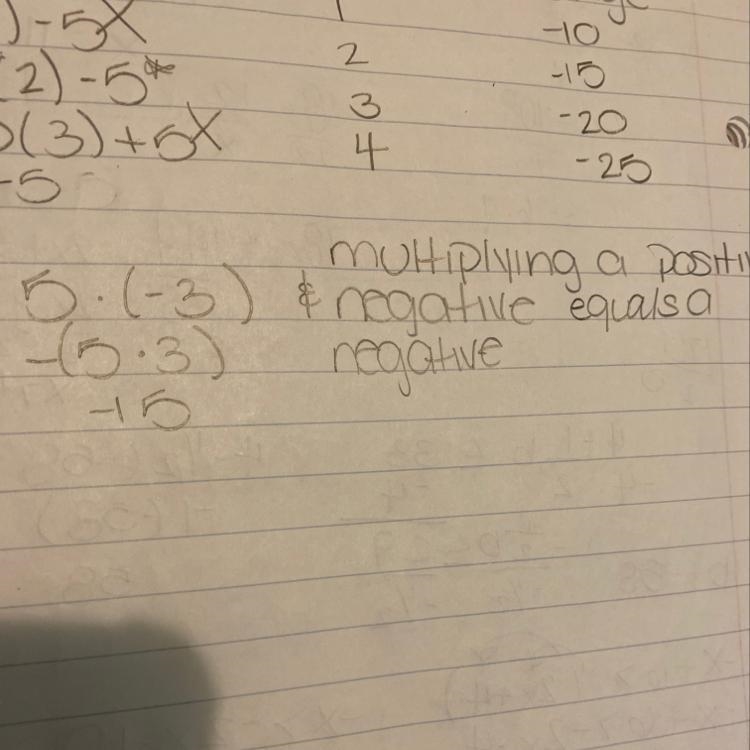 ) -5X 1 -10
2) -5* 2 -15
(3) +5X 3 -20
-5 4 -25
multiplying a positiv
5 · (-3) & negative equals a
-(5 · 3) negative
-15